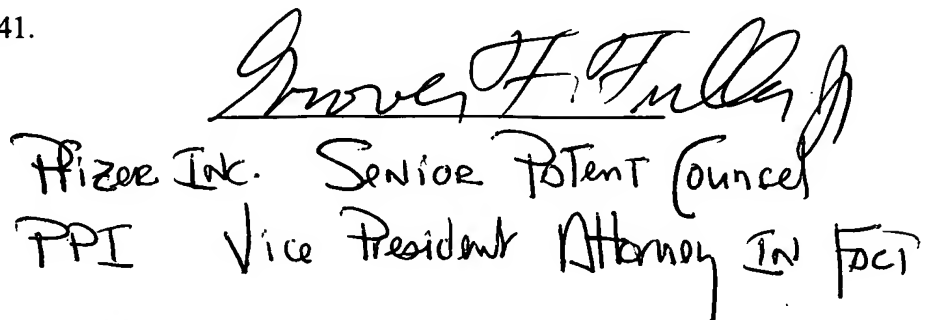 41.
Grover F. Fuller Jr
Pfizer Inc. Senior Patent Counsel
PPI Vice President Attorney In Fact